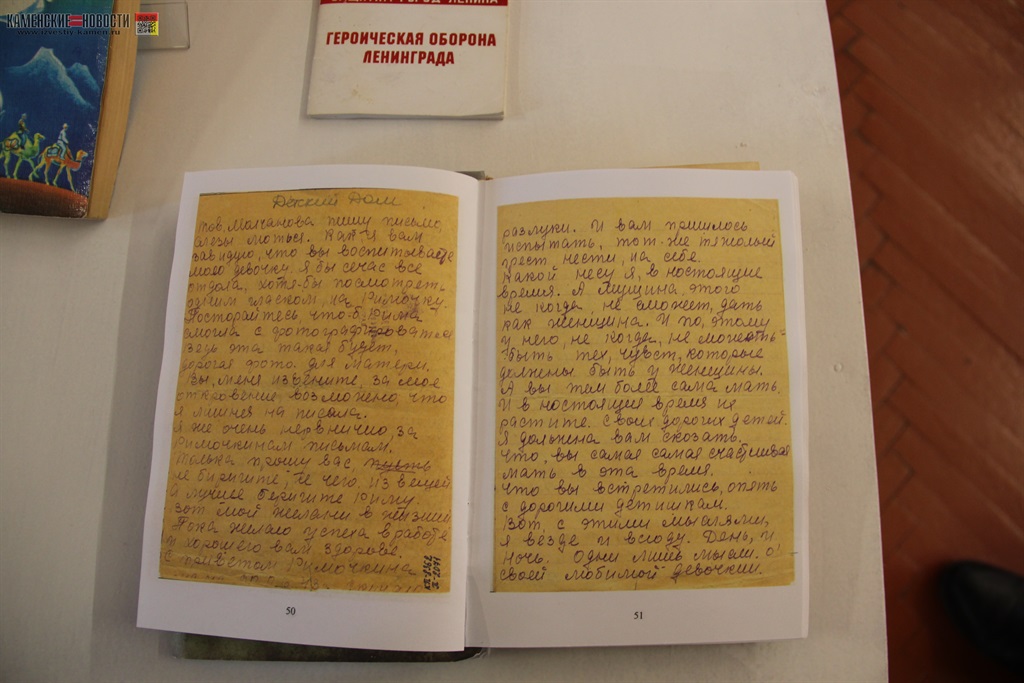 КАМЕНСКИЕ=НОВОСТИ
www.izvestiy-kamen.ru
ЗАЩИТИМ ГОРОД ЛЕНИНА
ГЕРОИЧЕСКАЯ ОБОРОНА
ЛЕНИНГРАДА
Декский Дом
тов. Молчанова пишу письмо,
слезы лються. Как я вам
завидую, что вы воспитываете
мою девочку. Я бы сечас все
отдола, хотя-бы посмотреть
одним гласком, на Римочку.
Посторайтесь, что-б, Рима
смогла с фотографироватся
ведь эта такая будет,
дорогая фото. для матери.
Вы, меня извените, за мое
откровение, возможено, что
я лишнея на писала.
Я же очень нервничию, за
Римочкинам письмам.
Толька, прошу вас,
не биригите, не чего. из вещей
а лучше беригите Риму.
Вот мой желании в жызнии
Пока желаю успеха в работе
и хорошего вам здоровье.
С приветом Римочкина
50
разлуки. И вам пришлось
испытать, тот же тяжолый
крест нести, на себе.
Какой несу я, в настоящие
время. А мущина, этого
не когда, не сможет, дать
как женщина. И по, этому
у него, не когда, не может
быть, тех, чувст, которые
должены быть у женщины.
А вы тем более сама мать.
И в настоящие время не
растите. своих дорогих детей.
Я должна вам сказать.
Что, вы самая самая счастливая
мать в эта время.
Что вы встретились, опять
с дорогими детишкам.
Вот, с этими мыслями,
я везде и всюду. День, и
ночь. одни лишь мысли. о
своей любимой девочкии.
51